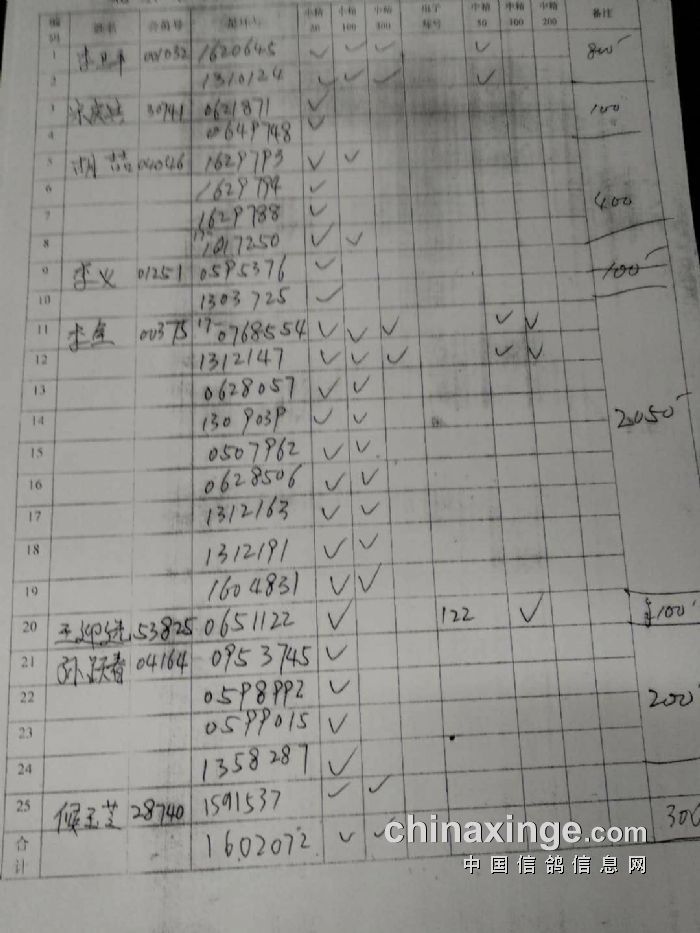 编码 会员号 足环号 小精50 小精100 小精300 电子环号 中精50 中精100 中精200 备注
1 001032 1620645 ✓ ✓ ✓ ✓ 800
2 1310124 ✓ ✓ ✓ ✓
3 30741 0621871 ✓ 100
4 0649748 ✓
5 胡喆 04046 1629793 ✓ ✓
6 1629794 ✓
7 1629788 ✓ 400
8 1017250 ✓ ✓
9 李义 01251 0595376 ✓ 100
10 1303725 ✓
11 00375 17 0768554 ✓ ✓ ✓ ✓ ✓
12 1312147 ✓ ✓ ✓ ✓ ✓
13 0628057 ✓ ✓
14 1309039 ✓ ✓ 2050
15 0507962 ✓ ✓
16 0628506 ✓ ✓
17 1312163 ✓ ✓
18 1312191 ✓ ✓
19 1604831 ✓ ✓
20 53825 0651122 ✓ 122 ✓ 100
21 孙跃春 04164 0953745 ✓
22 0598992 ✓ 200
23 0599015 ✓
24 1358287 ✓
25 侯玉芝 28740 1591537 ✓ ✓ 300
合计 1602072 ✓ ✓
chinaxinge.com
中国信鸽信息网